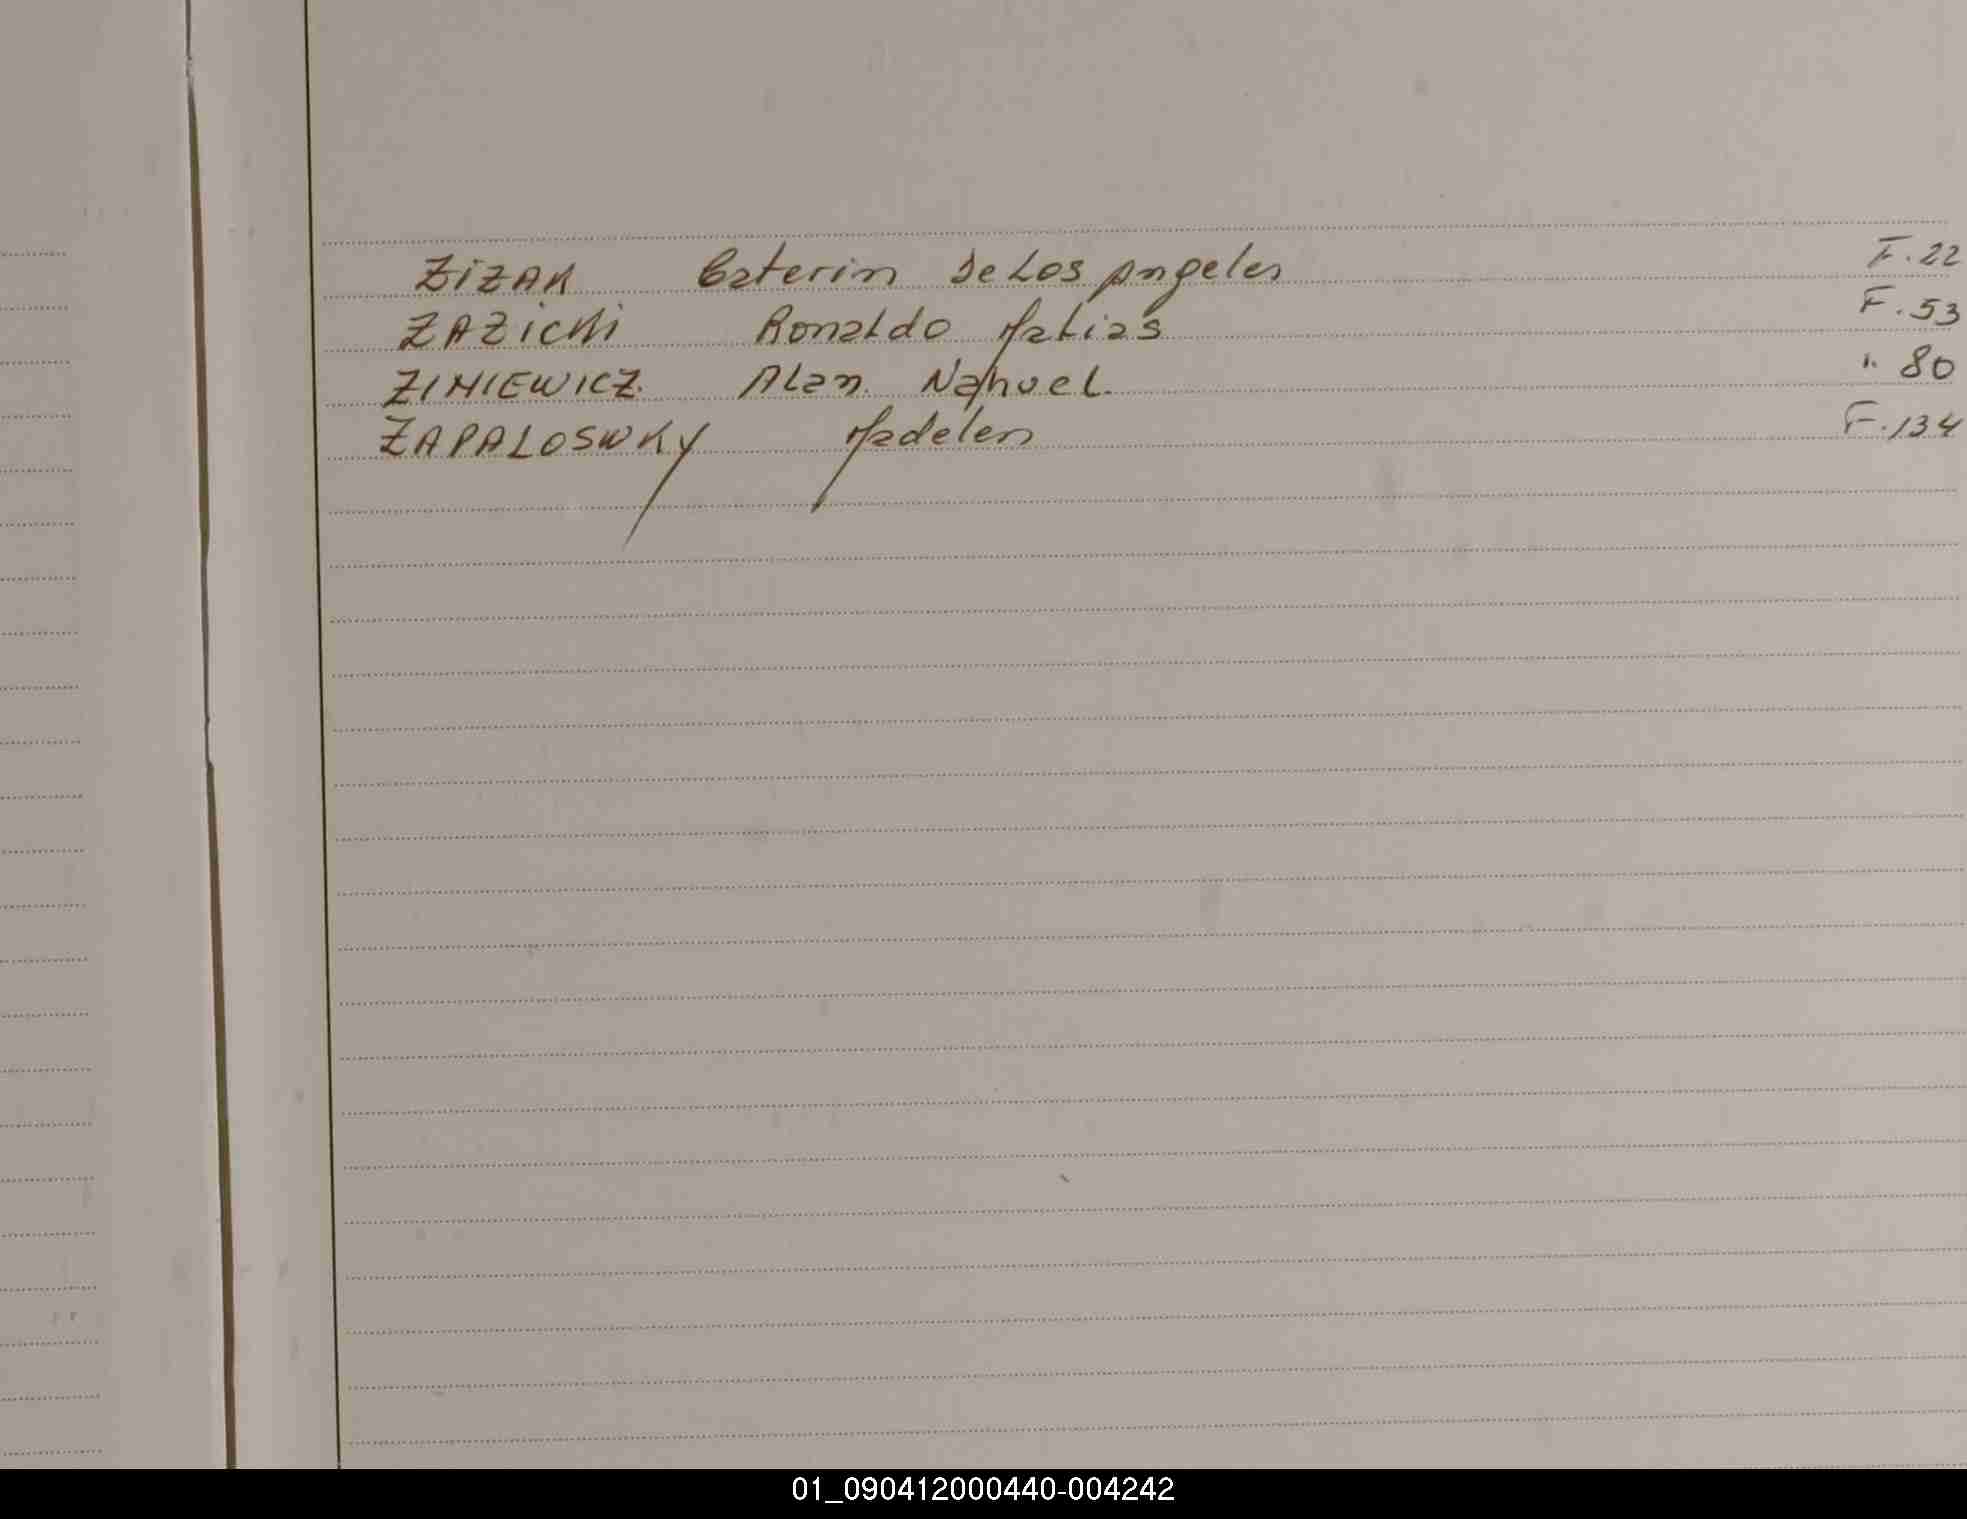 ZIZAK Caterin De Los Angeles F. 22
ZAZICKI Ronaldo Matias F. 53
ZIMIEWICZ. Alan Nahuel. " 80
ZAPALOSWKY Madelen F. 134
01_090412000440-004242